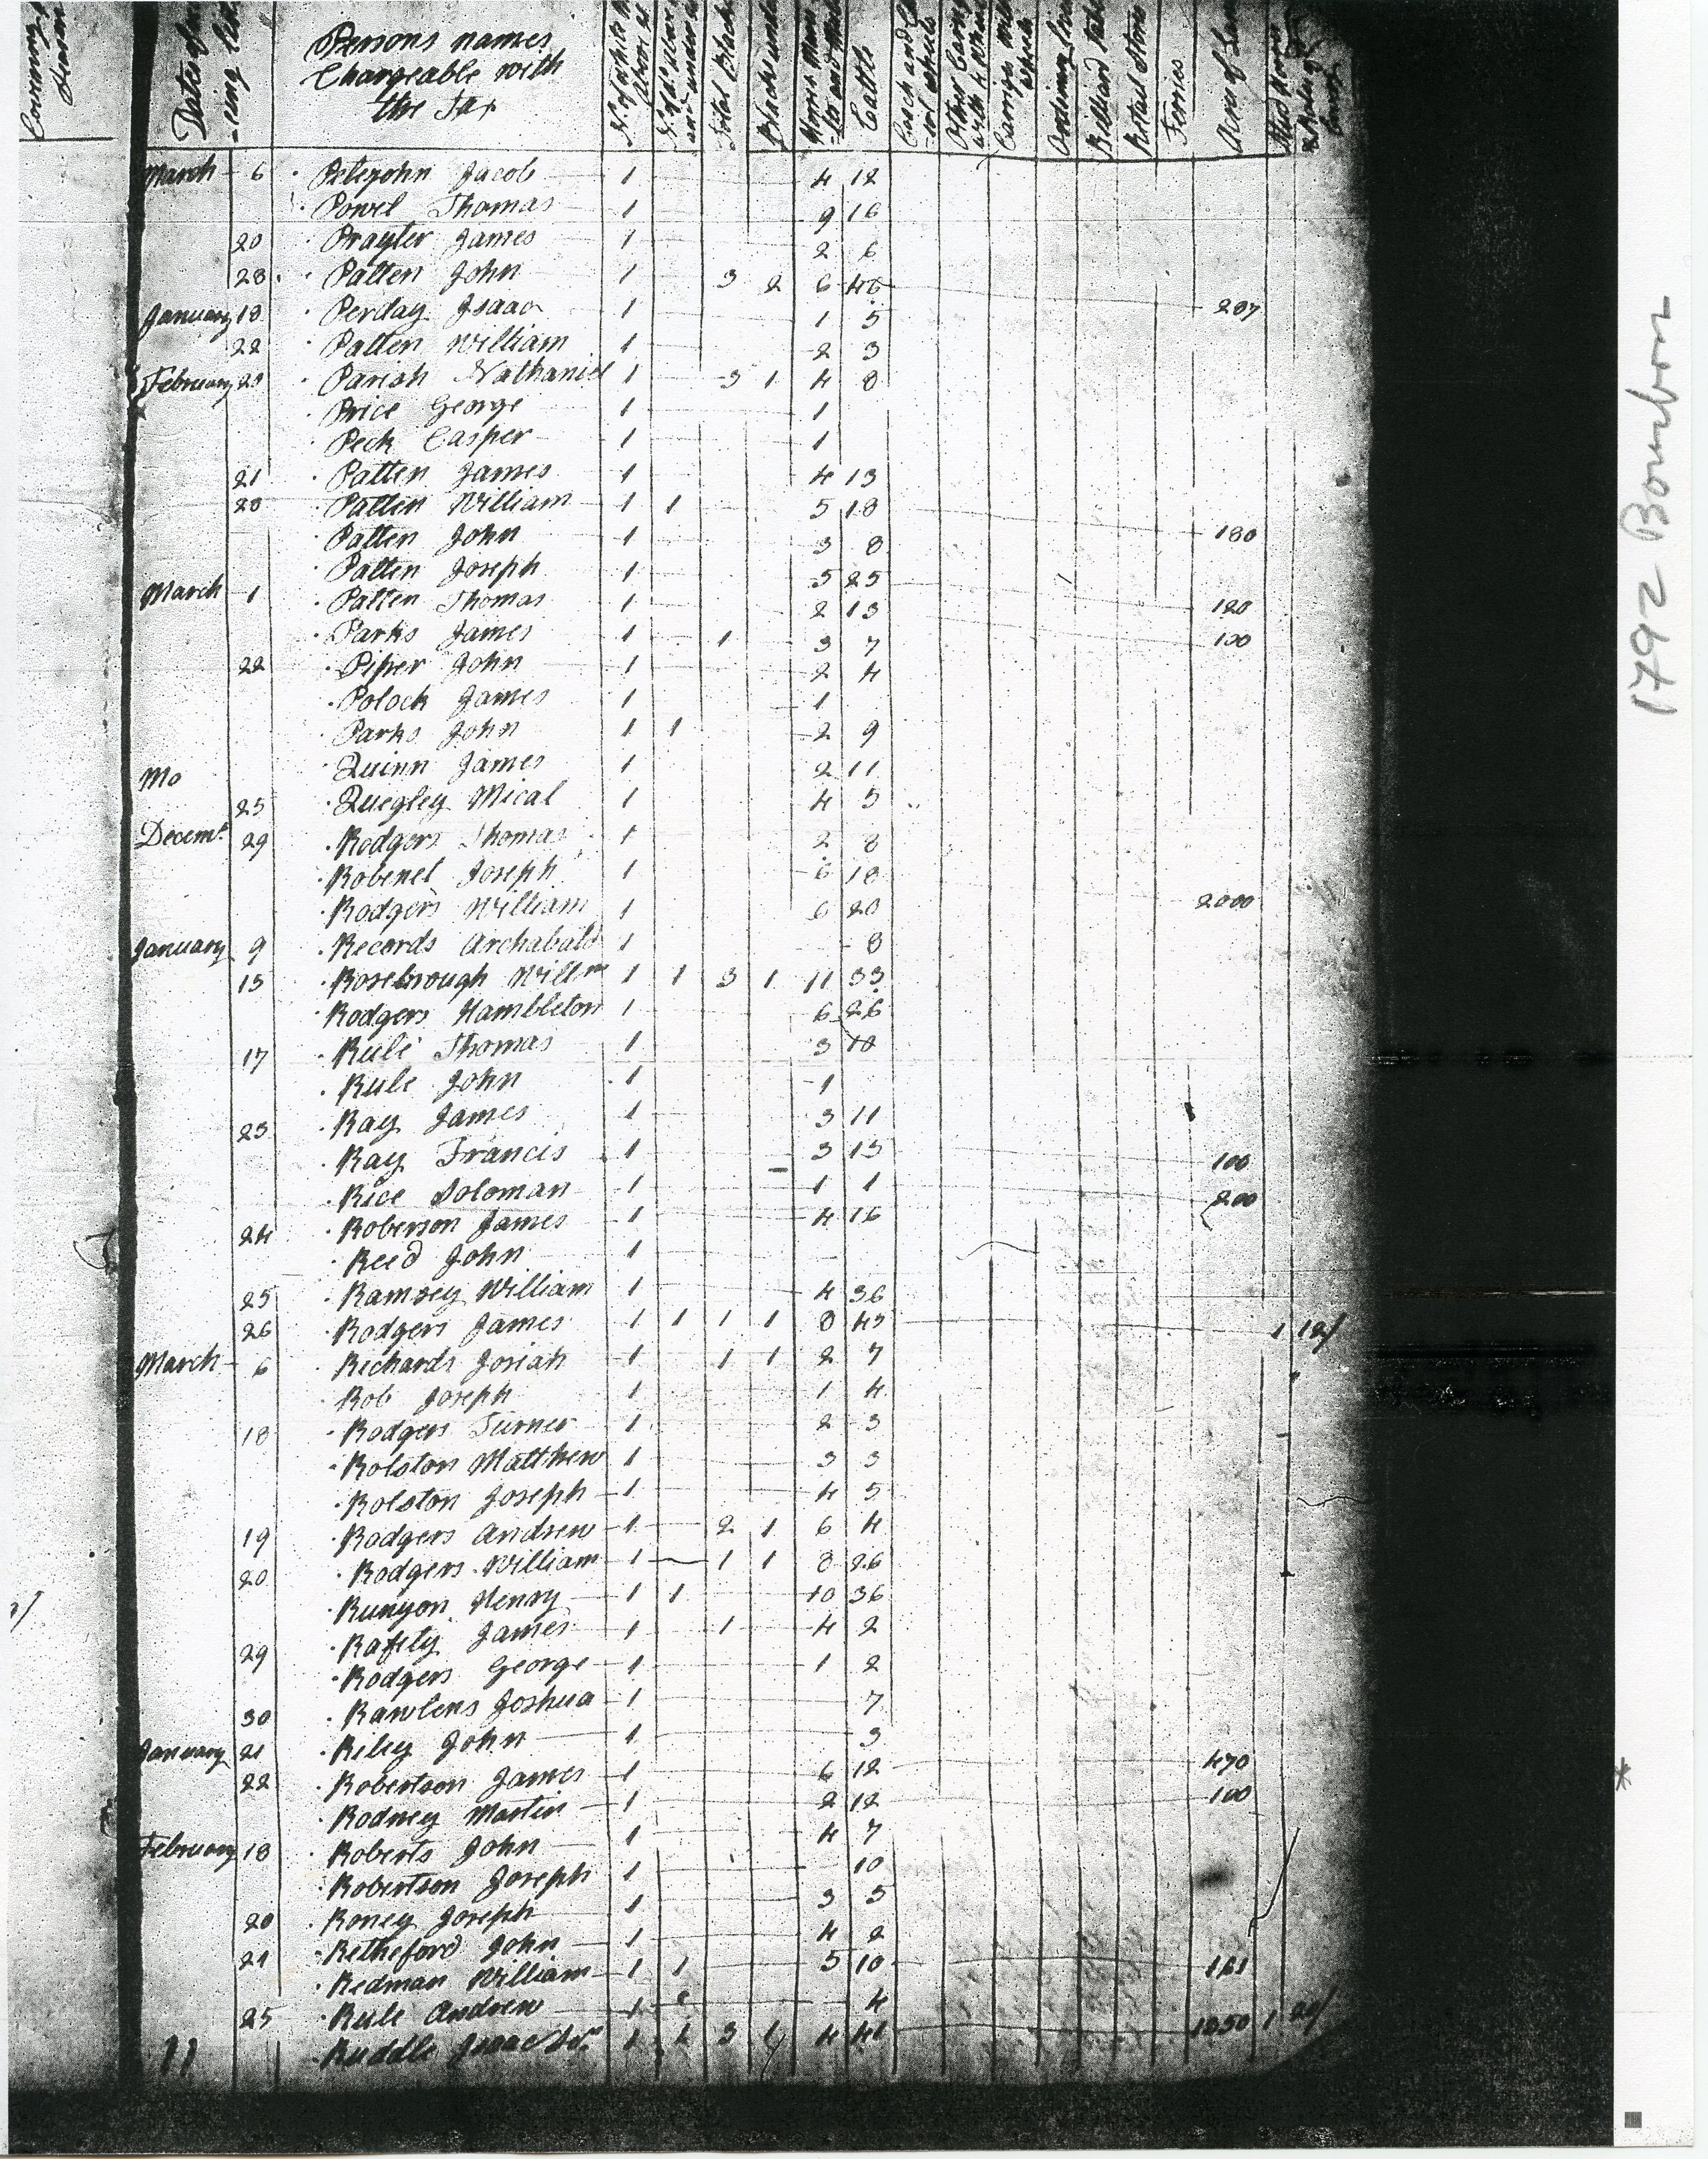 Dates of
Persons names
Chargeable with
the Tax
Total Blacks
Blacks
Cattle
Retail Stores
Ferries
Acres of
March 6 Petejohn Jacob 1 4 12
Powel Thomas 1 9 16
20 Prayter James 1 2 6
28 Patten John 1 3 2 6 46
January 18 Perday Isaac 1 1 5 287
22 Patten William 1 2 3
February 23 Parish Nathaniel 1 3 1 4 8
Price George 1 1
Peck Casper 1 1
21 Patten James 1 4 13
28 Patten William 1 1 5 18
Patten John 1 3 8 180
Patten Joseph 1 5 25
March 1 Patten Thomas 1 2 13 120
Parks James 1 1 3 7 100
22 Piper John 1 2 4
Polock James 1 1
Parks John 1 1 2 9
Mo Quinn James 1 2 11
25 Quegley Mical 1 4 5
Decemr 29 Rodgers Thomas 1 2 8
Robenel Joseph 1 6 18
Rodgers William 1 6 20 2000
January 9 Records Archabald 1 8
15 Rosebrough Willm 1 1 3 1 11 33
Rodgers Hambleton 1 6 26
17 Rule Thomas 1 3 10
Rule John 1 1
23 Ray James 1 3 11
Ray Francis 1 3 13 100
Rice Soloman 1 1 1 200
24 Roberson James 1 4 16
Reed John 1
25 Ramsey William 1 4 36
26 Rodgers James 1 1 1 1 8 45 1 12/
March 6 Richards Josiah 1 1 1 2 7
Rob Joseph 1 1 4
18 Rodgers Turner 1 2 3
Rolston Matthew 1 3 3
Rolston Joseph 1 4 5
19 Rodgers Andrew 1 2 1 6 4
20 Rodgers William 1 1 1 8 26
Runyon Henry 1 1 10 36
29 Rafety James 1 1 4 2
Rodgers George 1 1 2
30 Rawlens Joshua 1 7
January 21 Riley John 1 3
22 Robertson James 1 6 12 470
Rodney Martin 1 2 12 100
February 18 Roberts John 1 4 7
Robertson Joseph 1 10
20 Roney Joseph 1 3 5
21 Retheford John 1 4 2
Redman William 1 1 5 10 161
25 Rule Andrew 1 4
11 Ruddle Isaac Sr. 1 3 4 1050 1
1792 Bourbon
*